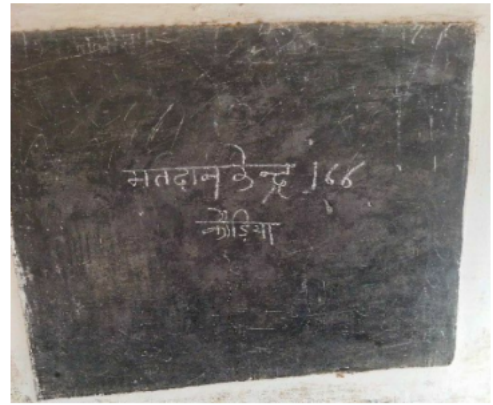 मतदान केन्द्र 166
कौड़िया